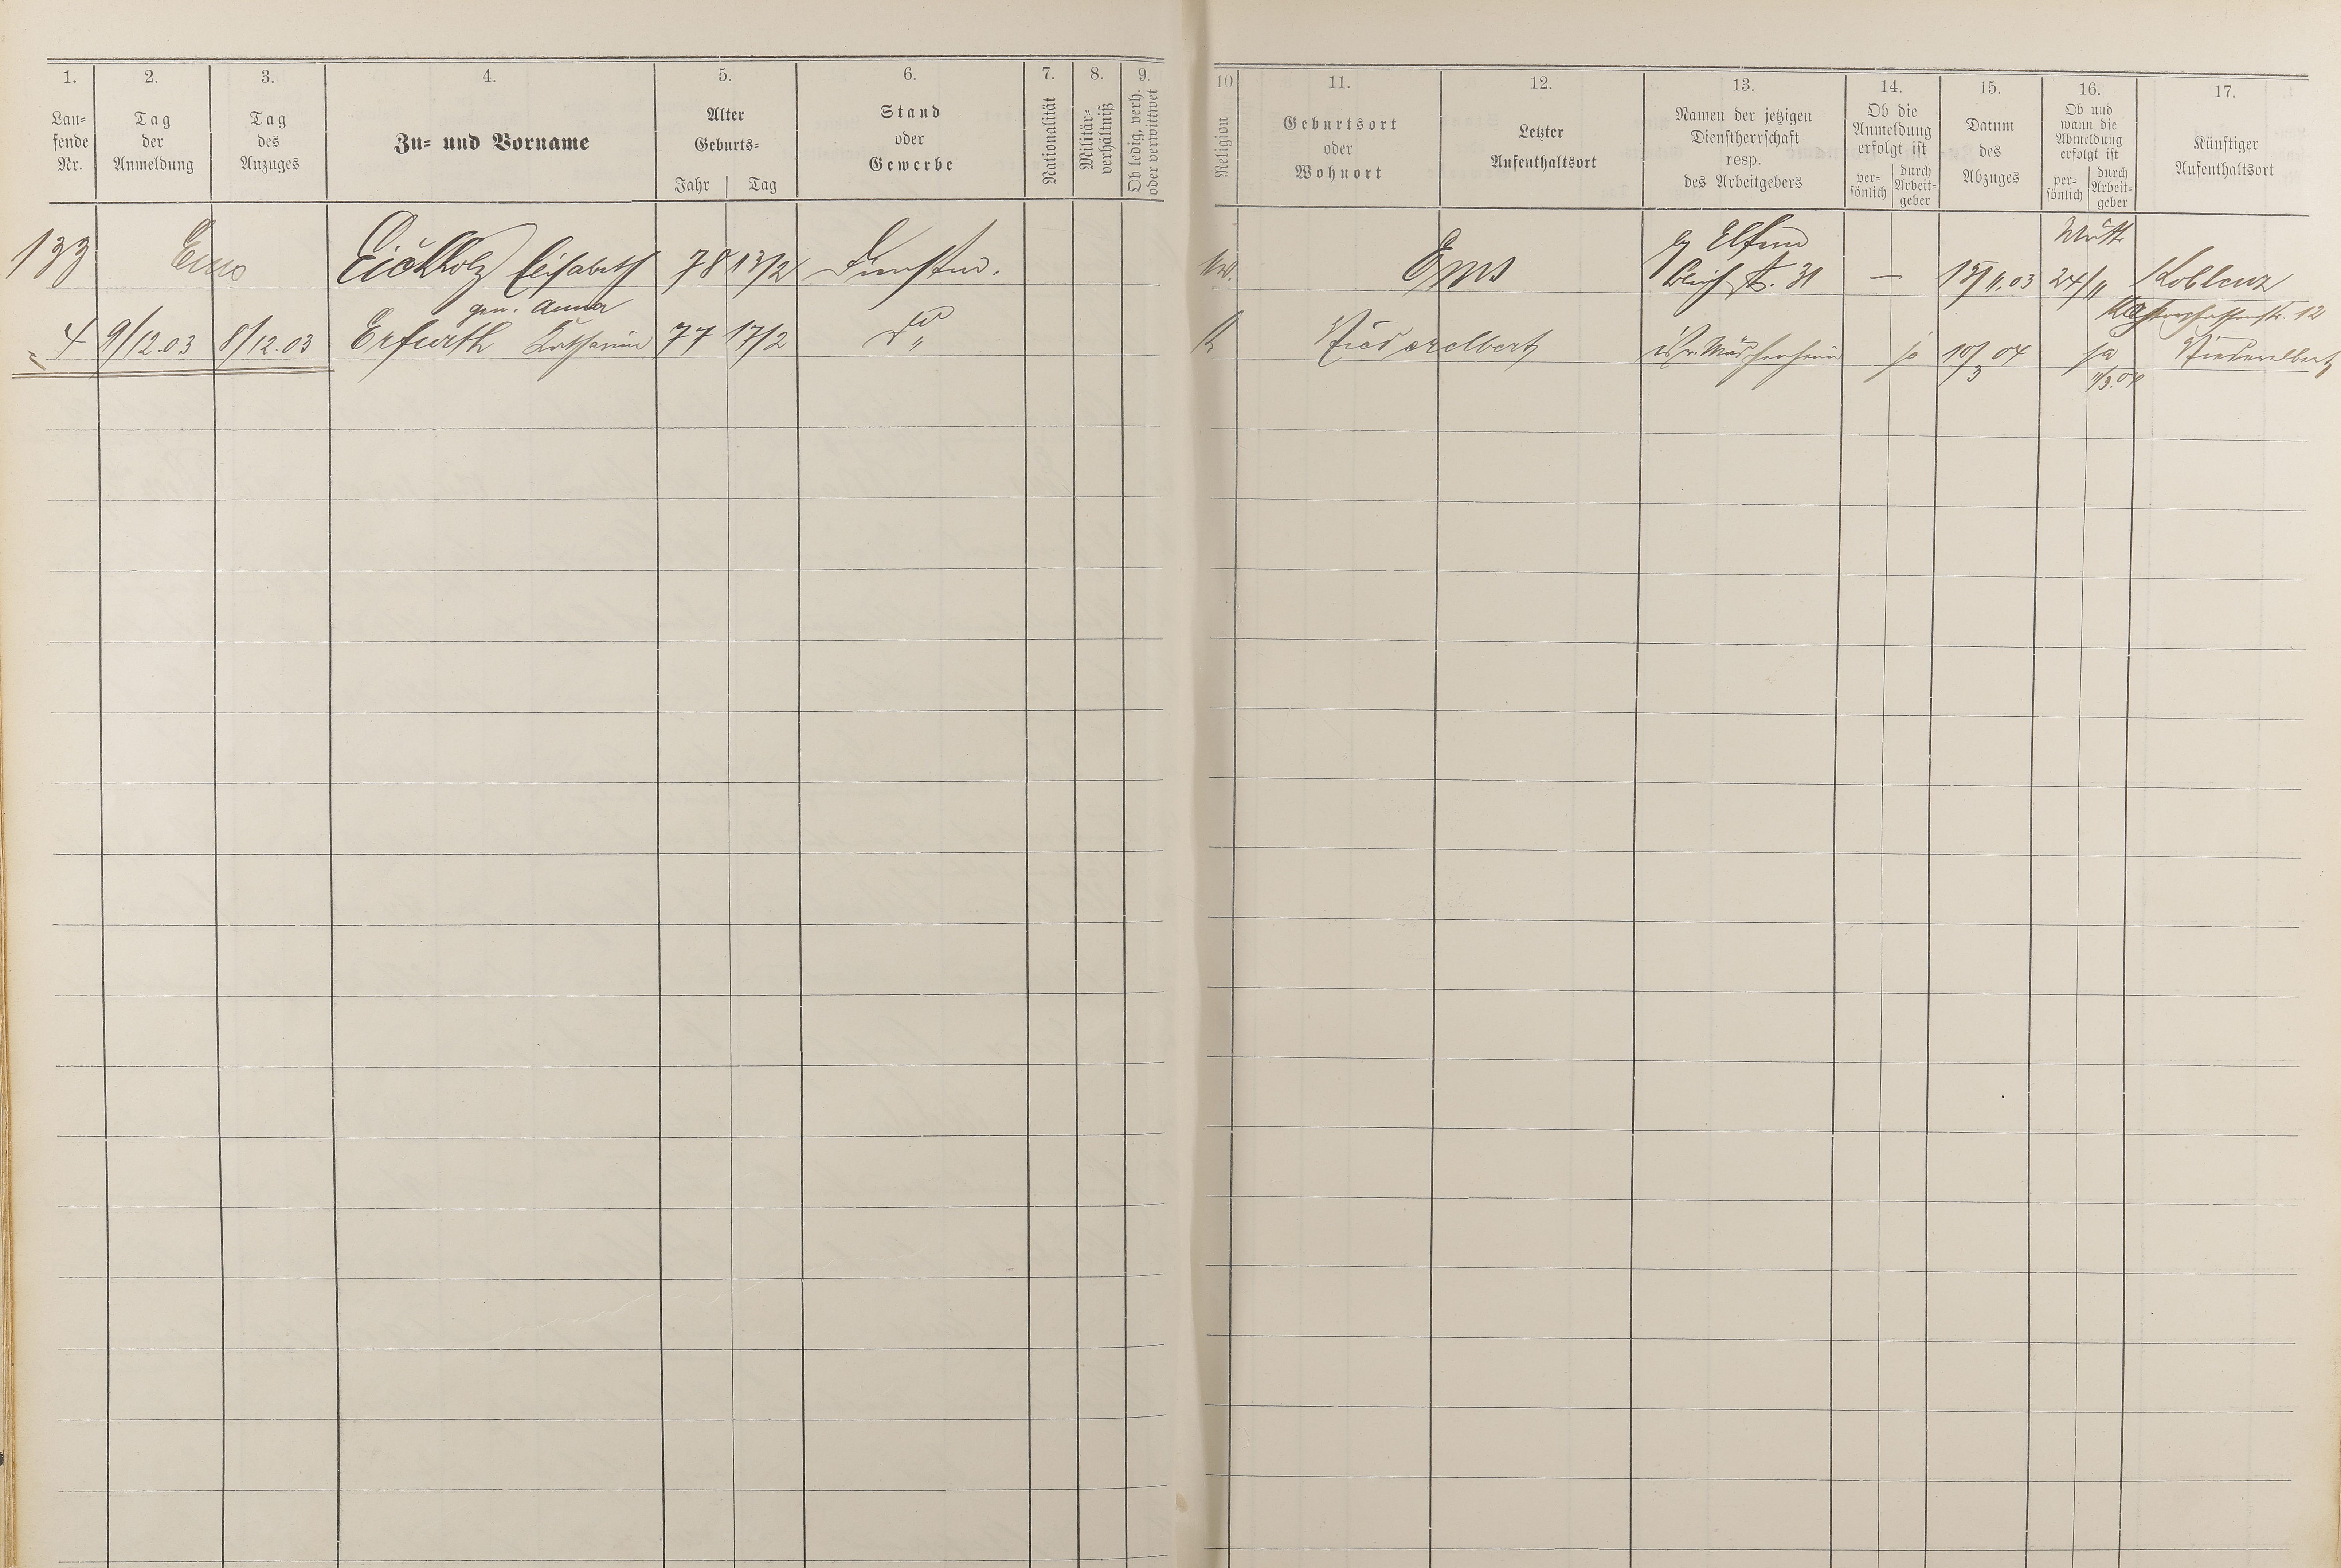 1. 2. 3. 4. 5. 6. 7. 8. 9. 10 11. 12. 13. 14. 15. 16. 17.
Lau-
fende
Nr.
Tag
der
Anmeldung
Tag
des
Anzuges
Zu- und Vorname
Alter
Geburts-
Jahr Tag
Stand
oder
Gewerbe
Nationalität
Militär-
verhältniß
Ob ledig, verh.
oder verwittwet
Religion
Geburtsort
oder
Wohnort
Letzter
Aufenthaltsort
Namen der jetzigen
Dienstherrschaft
resp.
des Arbeitgebers
Ob die
Anmeldung
erfolgt ist
per-
sönlich
durch
Arbeit-
geber
Datum
des
Abzuges
Ob und
wann die
Abmeldung
erfolgt ist
per-
sönlich
durch
Arbeit-
geber
Künftiger
Aufenthaltsort
133 Ems Eichholz Elisabeth 78 13/2 Dienstm. Ems
gen. Anna
31 — 15/11.03 24/11 Koblenz
12
4 9/12.03 8/12.03 Erfurth Katharina 77 17/2 K Niederelbert ja 10/3 04 ja Niederelbert
11/3.04